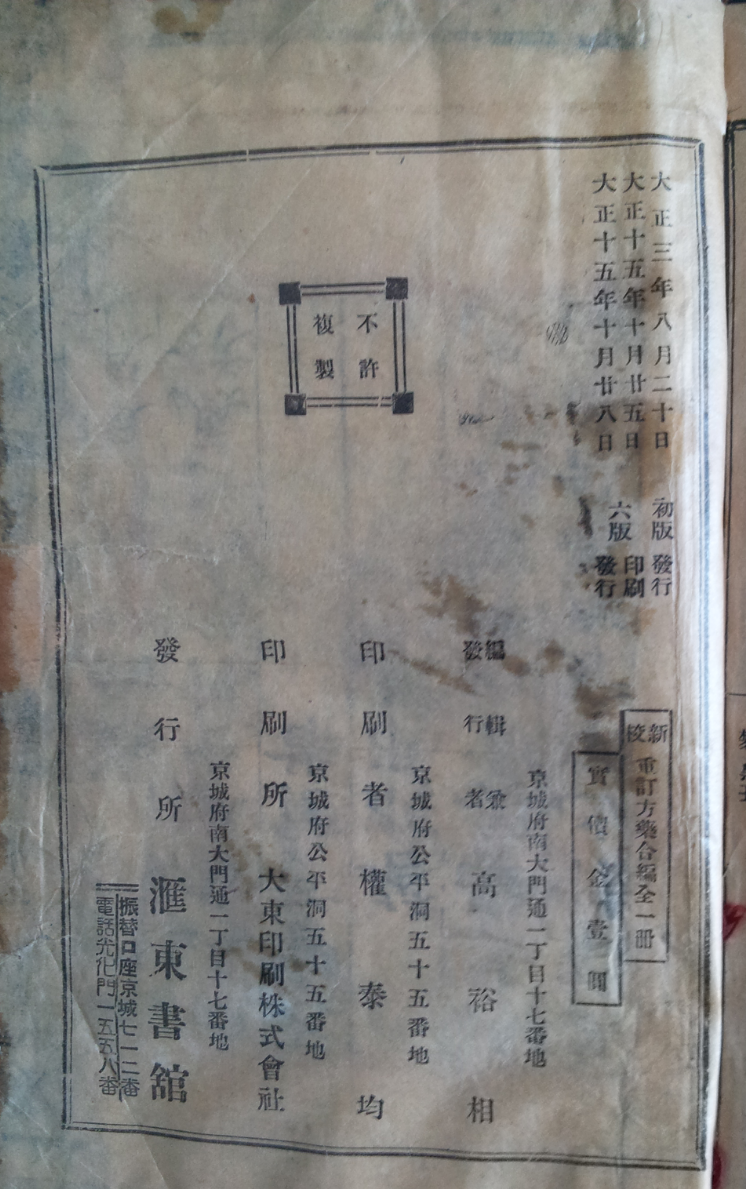 大正三年八月二十日 初版 發行
大正十五年十月廿五日 印刷
六版
大正十五年十月廿八日 發行
新校 重訂方藥合編全一冊
實價金壹圓
京城府南大門通一丁目十七番地
編輯兼
發行者 高裕相
京城府公平洞五十五番地
印刷者 權泰均
京城府公平洞五十五番地
印刷所 大東印刷株式會社
京城府南大門通一丁目十七番地
發行所 滙東書舘
振替口座京城七一二番
電話光化門一五五八番
不許
複製